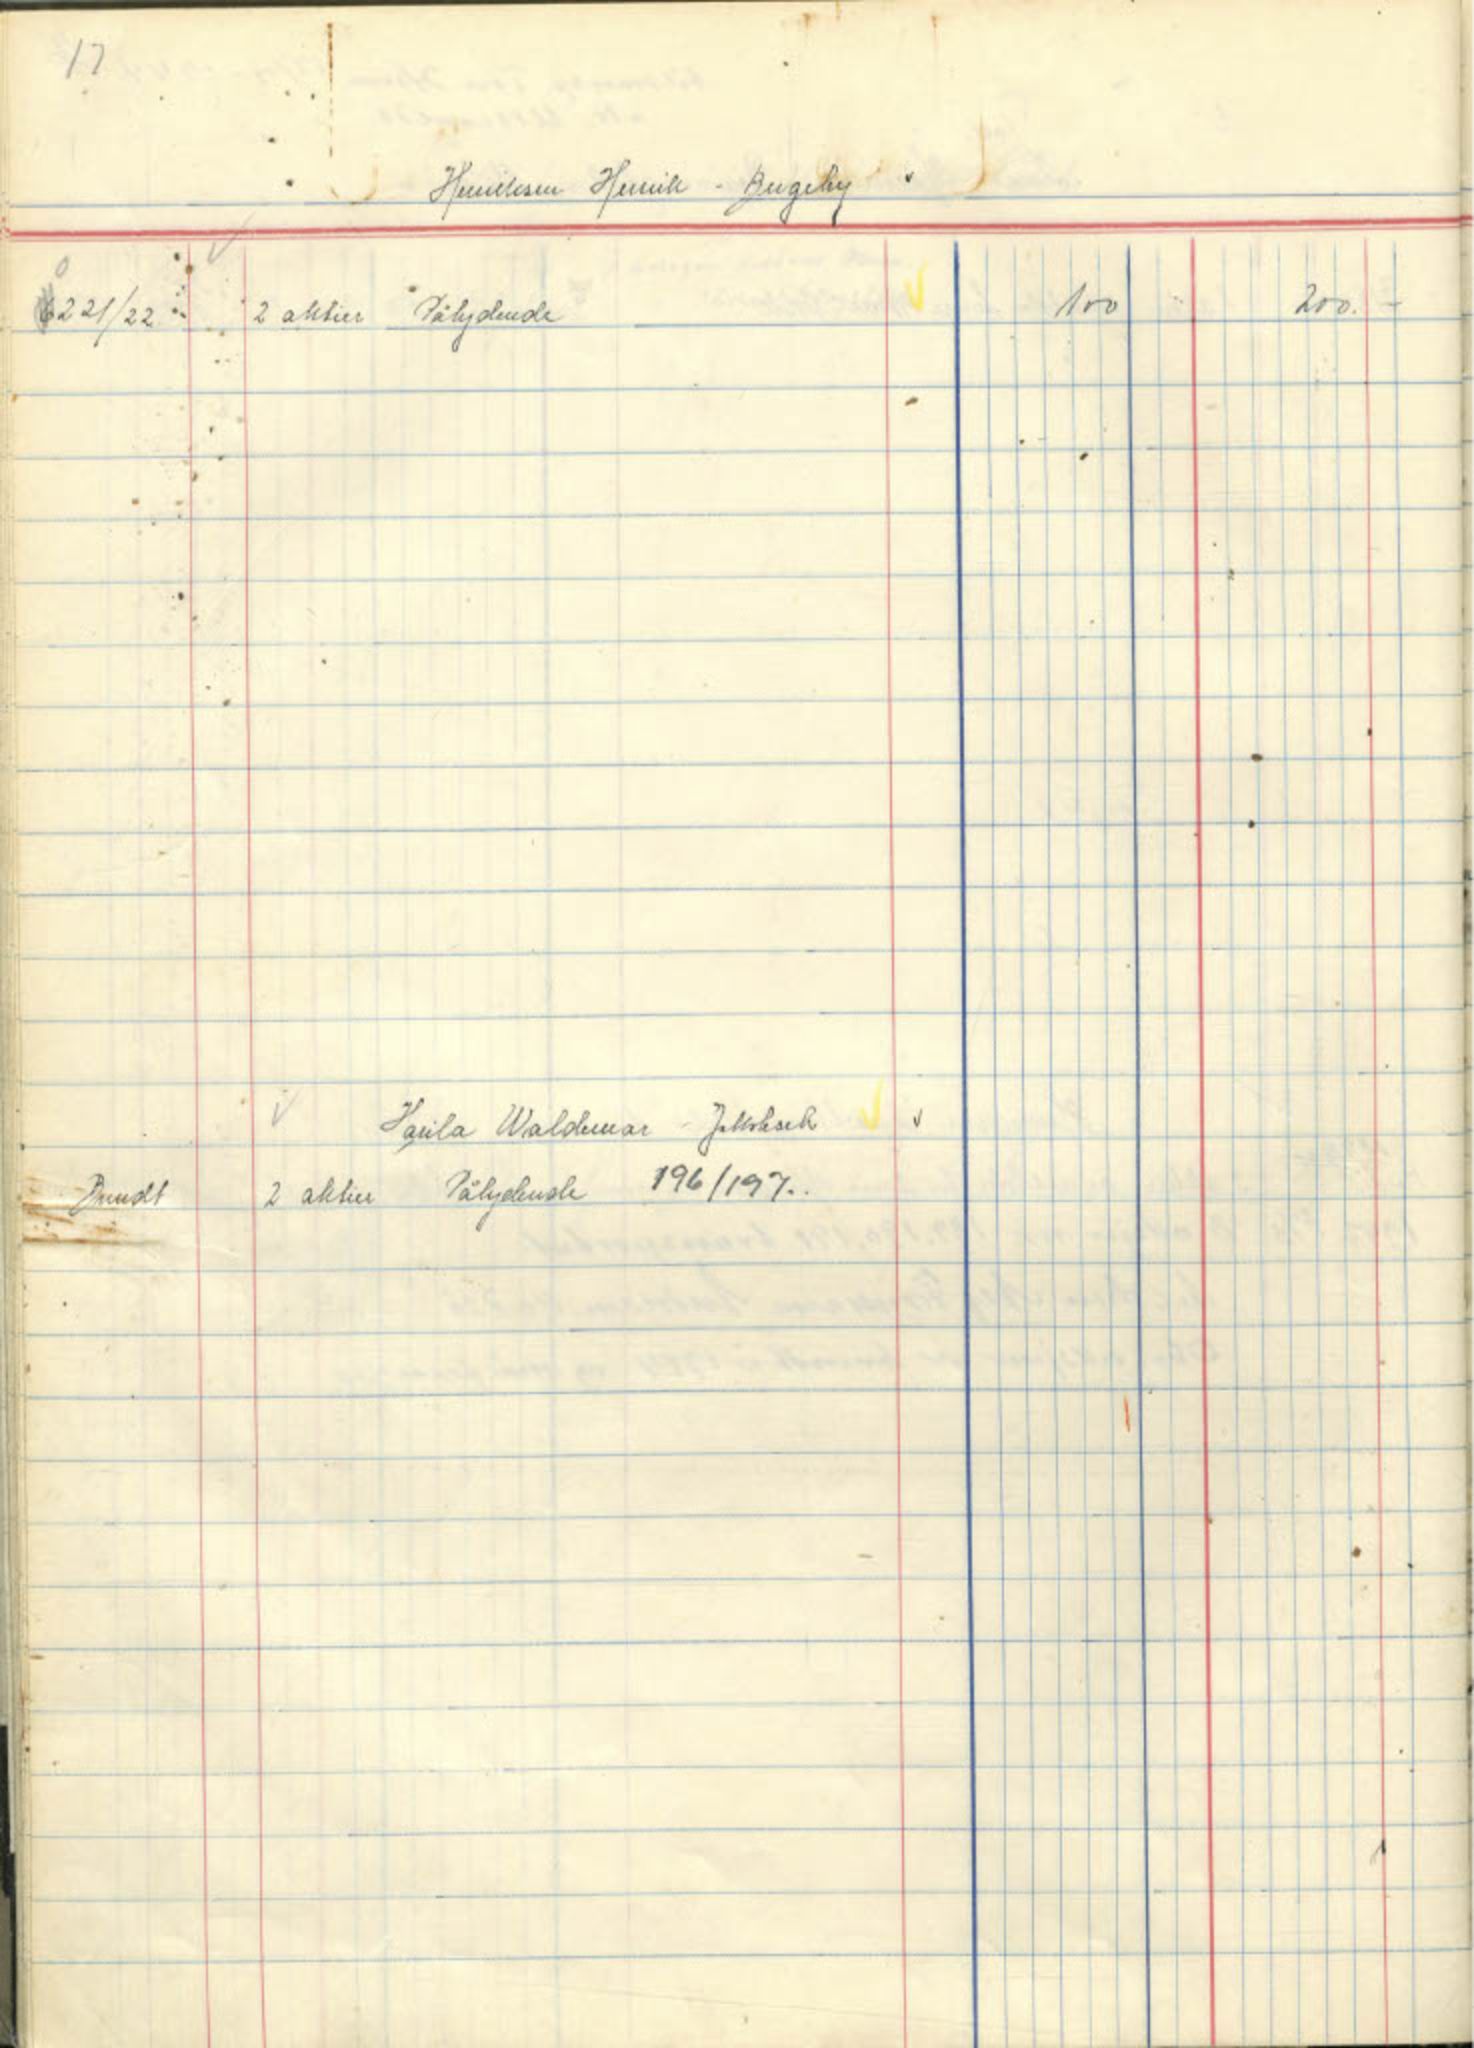 17
Henriksen Henrik - Bugøby
221/22 2 aktier Pålydende 100 200.-
Waldemar -
Brendt 2 aktier Pålydende 196/197.